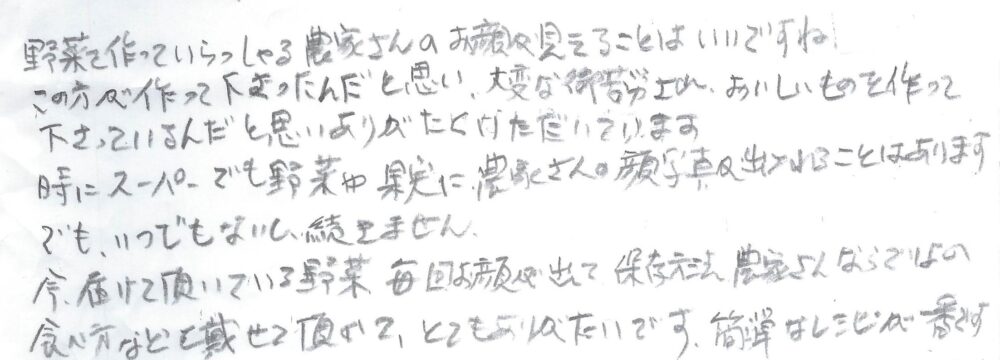 野菜を作っていらっしゃる農家さんのお顔が見えることはいいですね!
この方が作って下さったんだと思い、大変な御苦労され、おいしいものを作って
下さっているんだと思いありがたくいただいています
時にスーパーでも野菜や果実に、農家さんの顔写真が出ることはあります
でも、いつでもないし、続きません。
今、届けて頂いている野菜 毎回お顔が出て 保存方法、農家さんならではの
食べ方などを載せて頂いて、とてもありがたいです。簡単なレシピが一番です